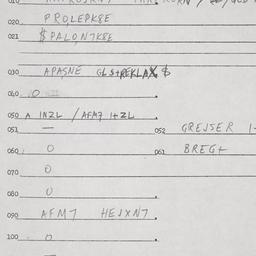 020 PROLEPK8E
021 $PALON7K8E
030 APASNE GLS+REKLAX $
040 0
050 A INZL / AFM7 I+ZL
051 — 052 GREJSER
060 0 061 BREG+
070 0
080 0
090 AFM7 HEJXN7
100 0